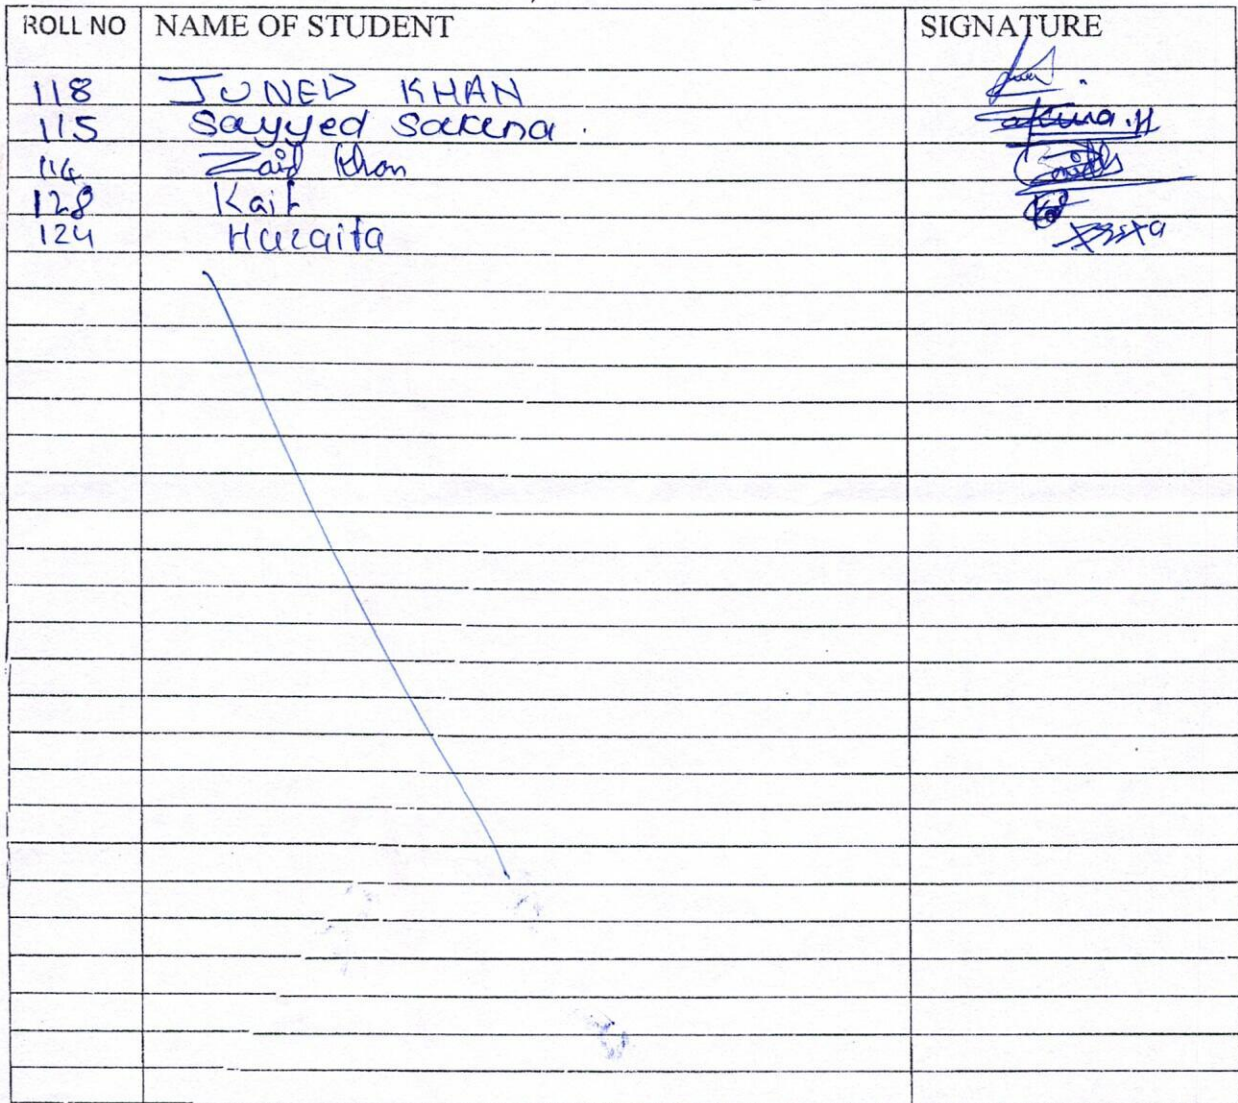 ROLL NO NAME OF STUDENT SIGNATURE
118 JUNED KHAN
115 Sayyed Sakena. Sakina.H
114 Zaid Khan
128 Kaif
124 Huzaifa